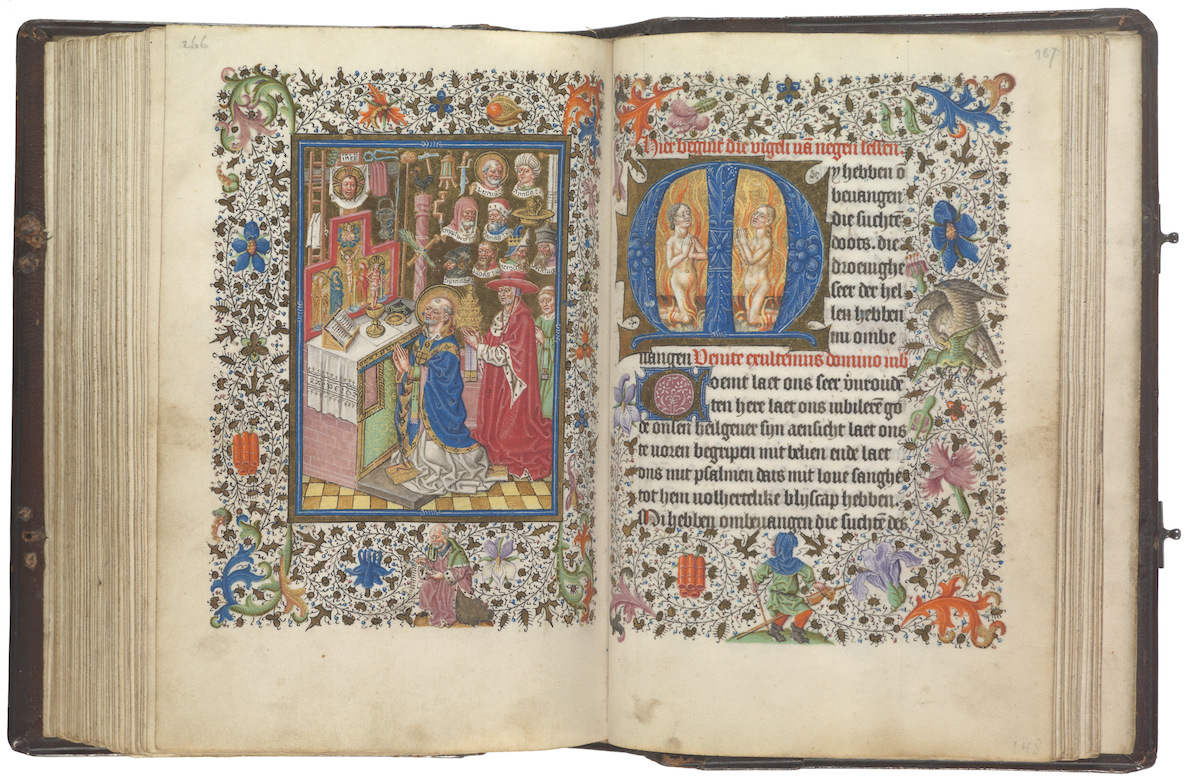 266
267
Hier begint die vigeli vā negen lessen.
My hebben ō
beuangen
die suchtē
doots. die
droeuighe
seer der hel
len hebben
mi ombe
uangen Venite exultemus domino iub
Coemt laet ons seer vūroude
ten here laet ons iubilerē go
de onsen heilgeuer syn aensicht laet ons
te uoren begripen mit belien ende laet
ons mit psalmen dats mit loue sanghe
tot hem uolherrelike bliscap hebben.
Mi hebben ombeuangen die suchtē des
148